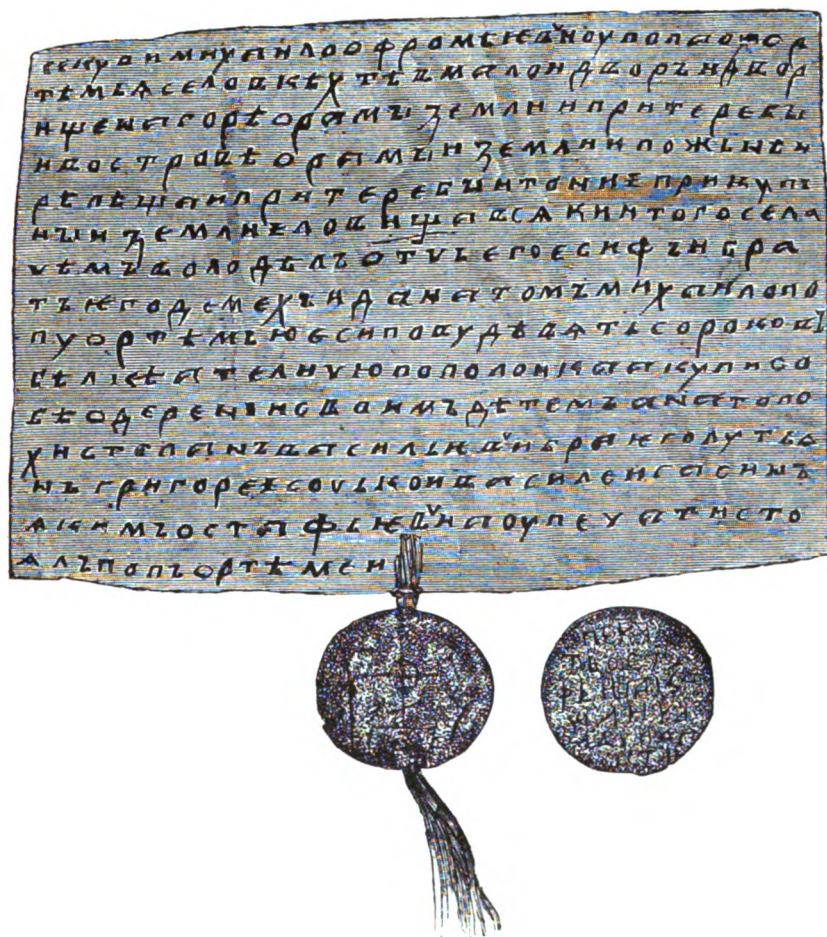 се купи михаило офромѣѥвⷱи оу попа оу ор
тѣмьѧ село в кѣхтѣ в малои дворъ и двор
ище на горѣ орамы земли и притеребы
и в островѣ орамыи земли и пожьнѣ и
рѣлѣща и притеребы и тониѣ прикупь
ныи земли и ловища всѧкии того села
чѣмъ володѣлъ отчь его есифъ и с бра
тьѥ по д смехъ и да на томъ михаило по
пу ортѣмью есипову дѣвѧть сороковъ
бѣлкѣ а телицю пополонка а купи со
бѣ одерень и своимъ дѣтемъ а на то по
хи степанъ васильѥвⷱи браѥ голутви
нъ григореѥ соцькои василеи
ѧкимъ остафьѥвⷱи а оу печати сто
ѧлъ попъ ортѣмеи